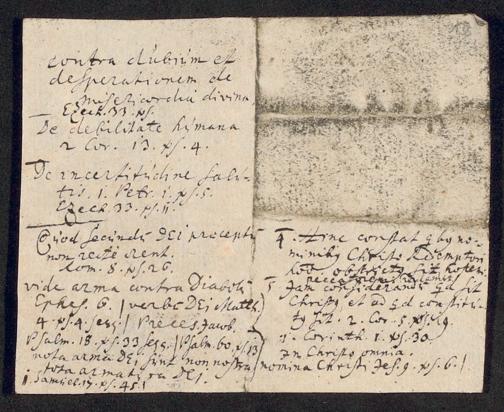 contra dubium et
desperationem de
misericordia divina
Ezech. 33. ps.
De debilitate humana
2 Cor. 13. ps. 4.
De incertitudine salu-
tis. 1. Petr. 1. ps. 5.
Ezech. 33. ps. 11.
Quod secundū DEi precepti
non recte orent.
Rom. 8. ps. 26.
vide arma contra Diaboli
Ephes. 6. / verbū DEi Matth.
4. ps. 4. seqq. / Preces Jacob.
Psalm. 18. ps. 33 seqq. / Psalm. 60. ps. 13
nota arma DEi sint non nostra
tota armatura DEi
1. Samuel. 17. ps. 45.
4. Hinc constat
Christo Redemptori
obstrictg sit
5. Jam considerandū sit
Christg et ad constitu-
tg sit. 2. Cor. 5. ps. 19.
1. Corinth. 1. ps. 30
In Christo omnia.
nomina Christi Jes. 9. ps. 6.